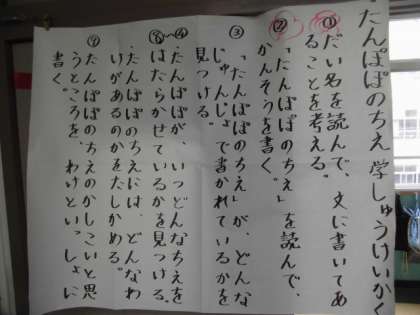 たんぽぽのちえ 学しゅうけいかく
①だい名を読んで、文に書いてあ
ることを考える。
②「たんぽぽのちえ」を読んで、
かんそうを書く。
③「たんぽぽのちえ」が、どんな
じゅんじょで書かれているかを
見つける。
④〜⑧・たんぽぽが、いつどんなちえを
はたらかせているかを見つける。
・たんぽぽのちえには、どんなわ
けがあるのかをたしかめる。
⑨たんぽぽのちえのかしこいと思
うところを、わけといっしょに
書く。